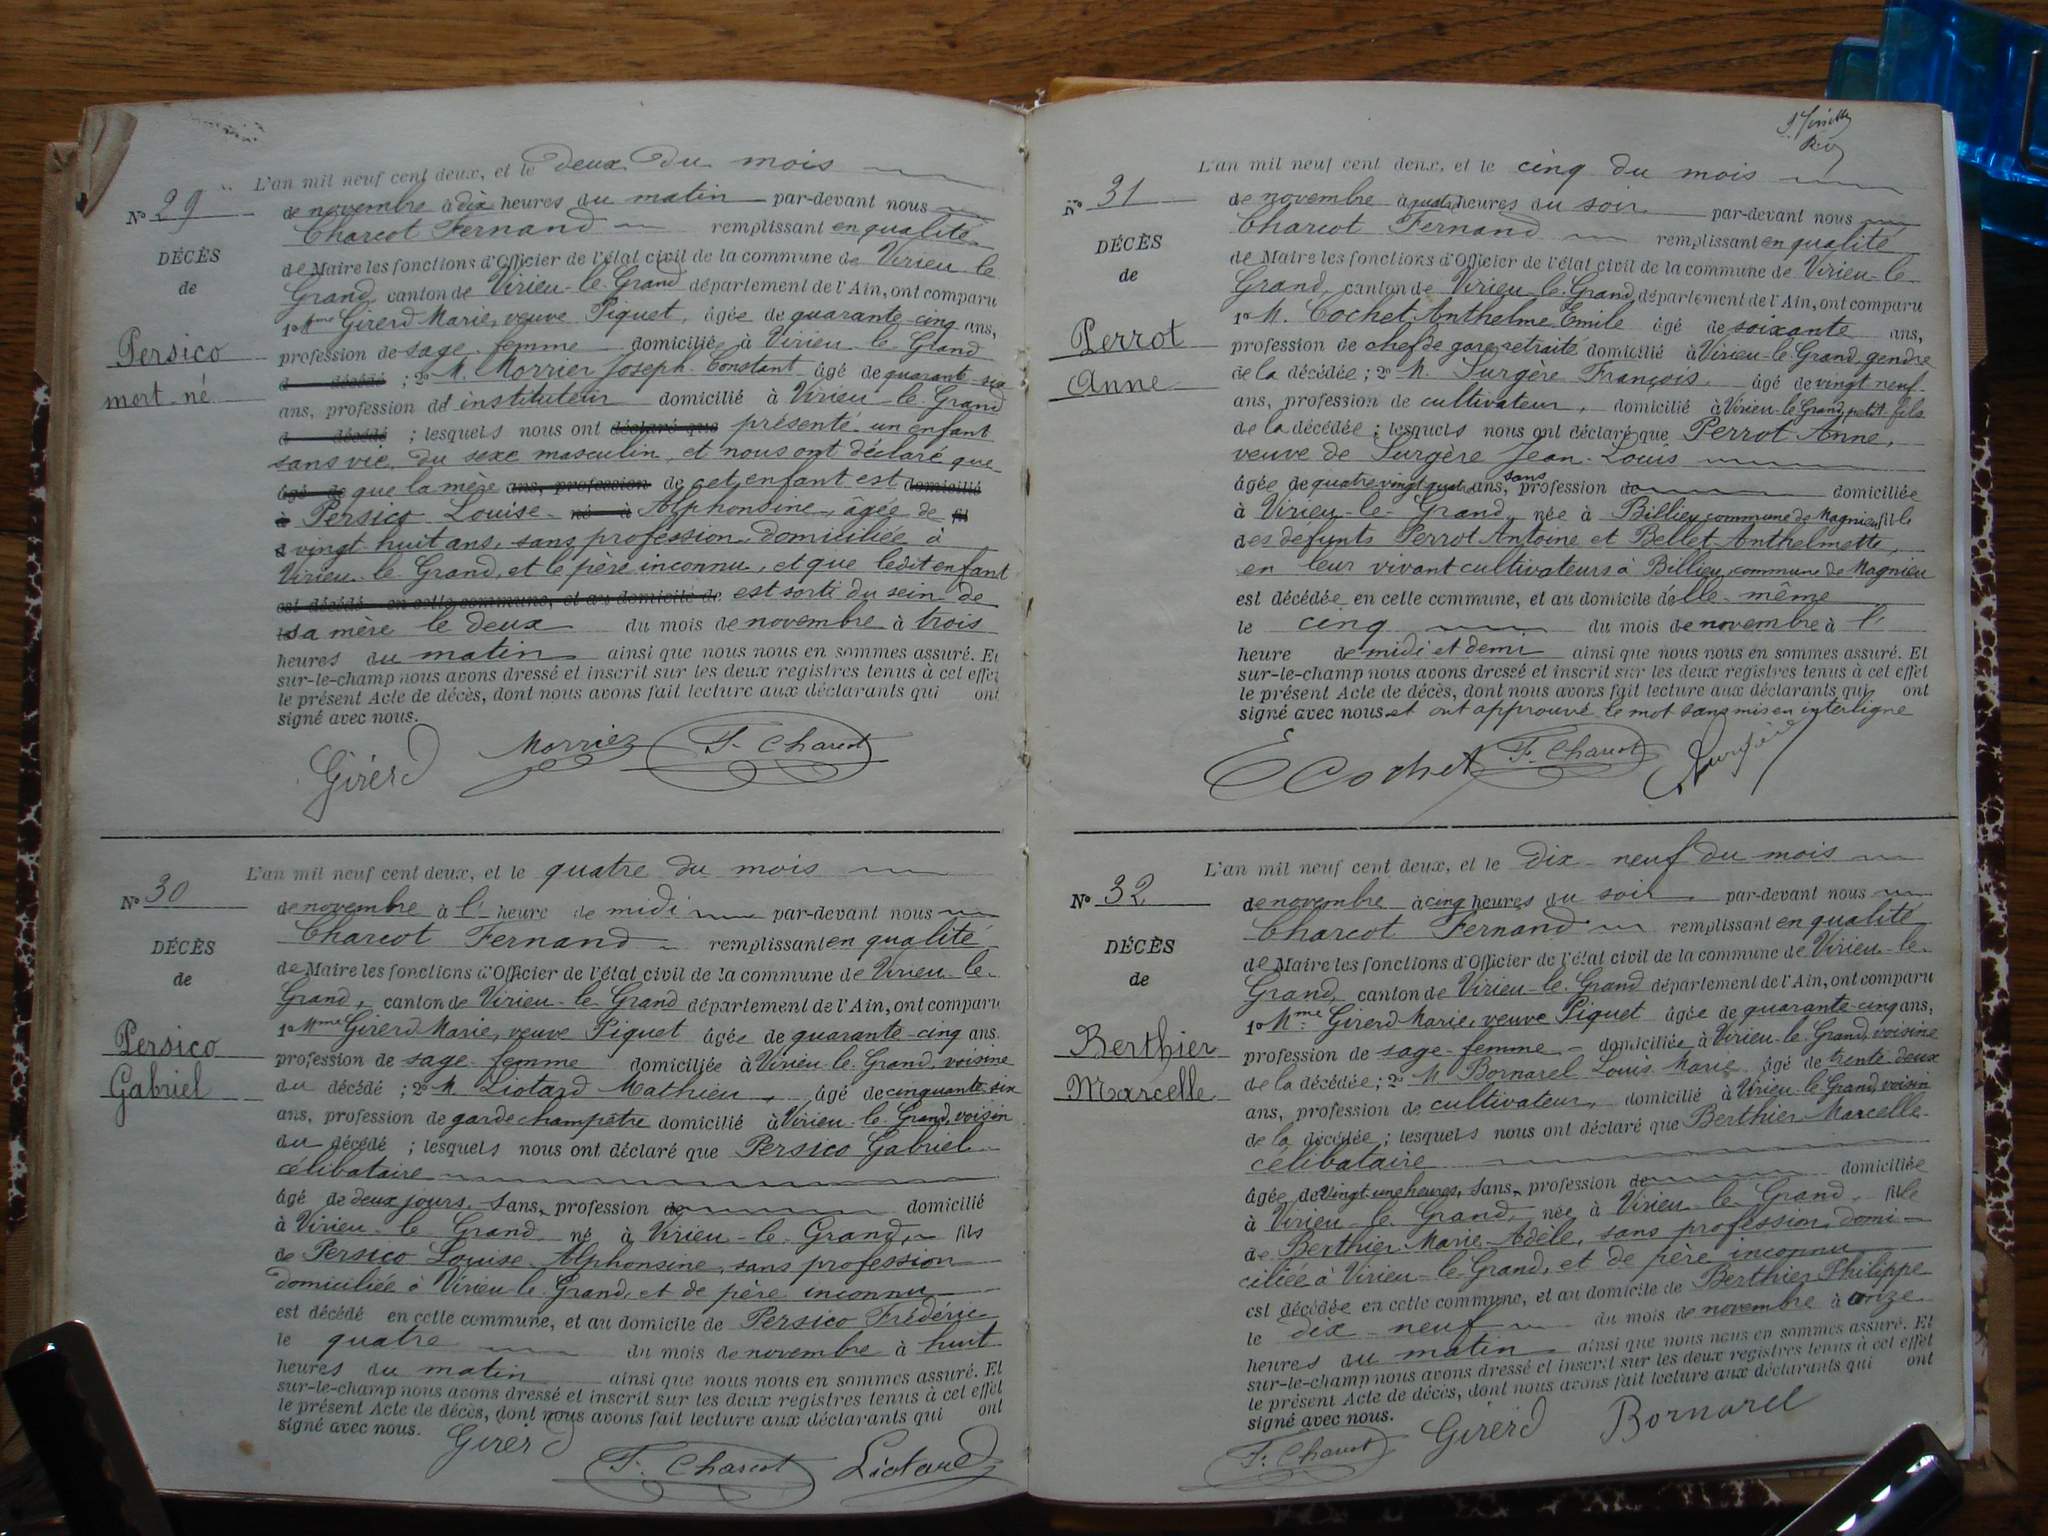 L'an mil neuf cent deux, et le deux du mois
No 29
de novembre à dix heures du matin par-devant nous
Charcot Fernand remplissant en qualité
DÉCÈS
de Maire les fonctions d'Officier de l'état civil de la commune de Virieu le
de
Grand, canton de Virieu-le-Grand département de l'Ain, ont comparu
1o Mme Girerd Marie, veuve Piquet, âgée de quarante-cinq ans,
Persico
profession de sage-femme domiciliée à Virieu-le-Grand
mort-né
d décédé ; 2o M. Morrier Joseph-Constant âgé de quarante-six
ans, profession d'instituteur domicilié à Virieu-le-Grand
d décédé ; lesquels nous ont déclaré que présenté un enfant
sans vie, du sexe masculin, et nous ont déclaré que
âgé de que la mère ans, profession de cet enfant est domicilié
à Persico Louise né à Alphonsine, âgée de fil
d vingt-huit ans, sans profession, domiciliée à
Virieu-le-Grand, et le père inconnu, et que ledit enfant
est décédé en cette commune, et au domicile de est sorti du sein de
le sa mère le deux du mois de novembre à trois
heures du matin ainsi que nous nous en sommes assuré. Et
sur-le-champ nous avons dressé et inscrit sur les deux registres tenus à cet effet
le présent Acte de décès, dont nous avons fait lecture aux déclarants qui ont
signé avec nous.
Girerd Morrier F. Charcot
L'an mil neuf cent deux, et le quatre du mois
No 30
de novembre à l' heure de midi par-devant nous
Charcot Fernand remplissant en qualité
DÉCÈS
de Maire les fonctions d'Officier de l'état civil de la commune de Virieu-le-
de
Grand, canton de Virieu-le-Grand département de l'Ain, ont comparu
1o Mme Girerd Marie, veuve Piquet âgée de quarante-cinq ans.
Persico
profession de sage-femme domiciliée à Virieu-le-Grand, voisine
Gabriel
du décédé ; 2o M. Liotard Mathieu, âgé de cinquante-six
ans, profession de garde champêtre domicilié à Virieu-le-Grand, voisin
du décédé ; lesquels nous ont déclaré que Persico Gabriel
célibataire
âgé de deux jours, sans, profession de domicilié
à Virieu-le-Grand né à Virieu-le-Grand, fils
de Persico Louise-Alphonsine, sans profession
domiciliée à Virieu-le-Grand, et de père inconnu
est décédé en cette commune, et au domicile de Persico Frédéric
le quatre du mois de novembre à huit
heures du matin ainsi que nous nous en sommes assuré. Et
sur-le-champ nous avons dressé et inscrit sur les deux registres tenus à cet effet
le présent Acte de décès, dont nous avons fait lecture aux déclarants qui ont
signé avec nous. Girerd
F. Charcot Liotard
L'an mil neuf cent deux, et le cinq du mois
No 31
de novembre à quatre heures du soir par-devant nous
Charcot Fernand remplissant en qualité
DÉCÈS
de Maire les fonctions d'Officier de l'état civil de la commune de Virieu-le-
de
Grand, canton de Virieu-le-Grand, département de l'Ain, ont comparu
1o M. Cochet Anthelme Emile âgé de soixante ans,
Perrot
profession de chef de gare retraité domicilié à Virieu-le-Grand, gendre
Anne
de la décédée ; 2o M. Surgère François âgé de vingt-neuf
ans, profession de cultivateur, domicilié à Virieu-le-Grand, petit-fils
de la décédée ; lesquels nous ont déclaré que Perrot Anne,
veuve de Surgère Jean-Louis
âgée de quatre vingt quatre ans, sans profession de domiciliée
à Virieu-le-Grand, née à Billieu, commune de Magnieu, fille
des défunts Perrot Antoine et Bellet Anthelmette,
en leur vivant cultivateurs à Billieu, commune de Magnieu
est décédée en cette commune, et au domicile d'elle-même
le cinq du mois de novembre à l'
heure de midi et demi ainsi que nous nous en sommes assuré. Et
sur-le-champ nous avons dressé et inscrit sur les deux registres tenus à cet effet
le présent Acte de décès, dont nous avons fait lecture aux déclarants qui ont
signé avec nous et ont approuvé le mot sans mis en interligne
E Cochet F. Charcot Surgère
L'an mil neuf cent deux, et le dix-neuf du mois
No 32
de novembre à cinq heures du soir par-devant nous
Charcot Fernand remplissant en qualité
DÉCÈS
de Maire les fonctions d'Officier de l'état civil de la commune de Virieu-le-
de
Grand, canton de Virieu-le-Grand département de l'Ain, ont comparu
1o Mme Girerd Marie, veuve Piquet âgée de quarante-cinq ans,
Berthier
profession de sage-femme domiciliée à Virieu-le-Grand, voisine
Marcelle
de la décédée ; 2o M Bornarel Louis-Marie âgé de trente-deux
ans, profession de cultivateur, domicilié à Virieu-le-Grand, voisin
de la décédée ; lesquels nous ont déclaré que Berthier Marcelle
célibataire
âgée de Vingt-une heures, sans, profession de domiciliée
à Virieu-le-Grand, née à Virieu-le-Grand, fille
de Berthier Marie-Adèle, sans profession, domi-
ciliée à Virieu-le-Grand, et de père inconnu
est décédée en cette commune, et au domicile de Berthier Philippe
le dix-neuf du mois de novembre à onze
heures du matin ainsi que nous nous en sommes assuré. Et
sur-le-champ nous avons dressé et inscrit sur les deux registres tenus à cet effet
le présent Acte de décès, dont nous avons fait lecture aux déclarants qui ont
signé avec nous.
F. Charcot Girerd Bornarel